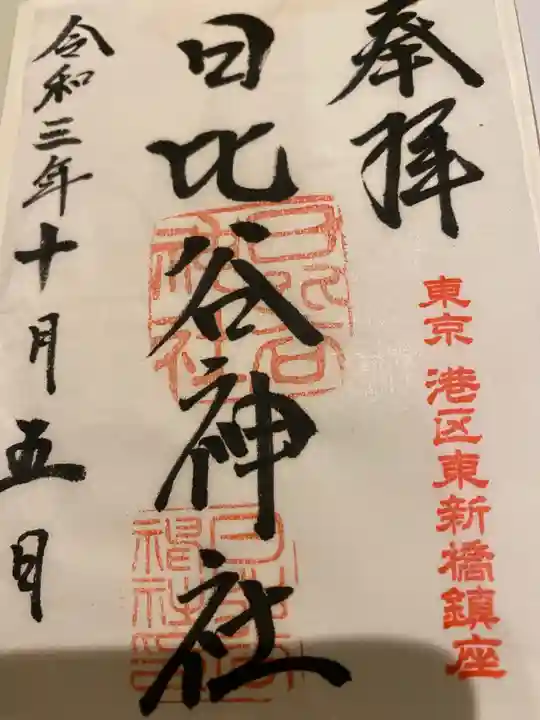 奉拝
東京 港区東新橋鎮座
日比谷神社
令和三年十月五日